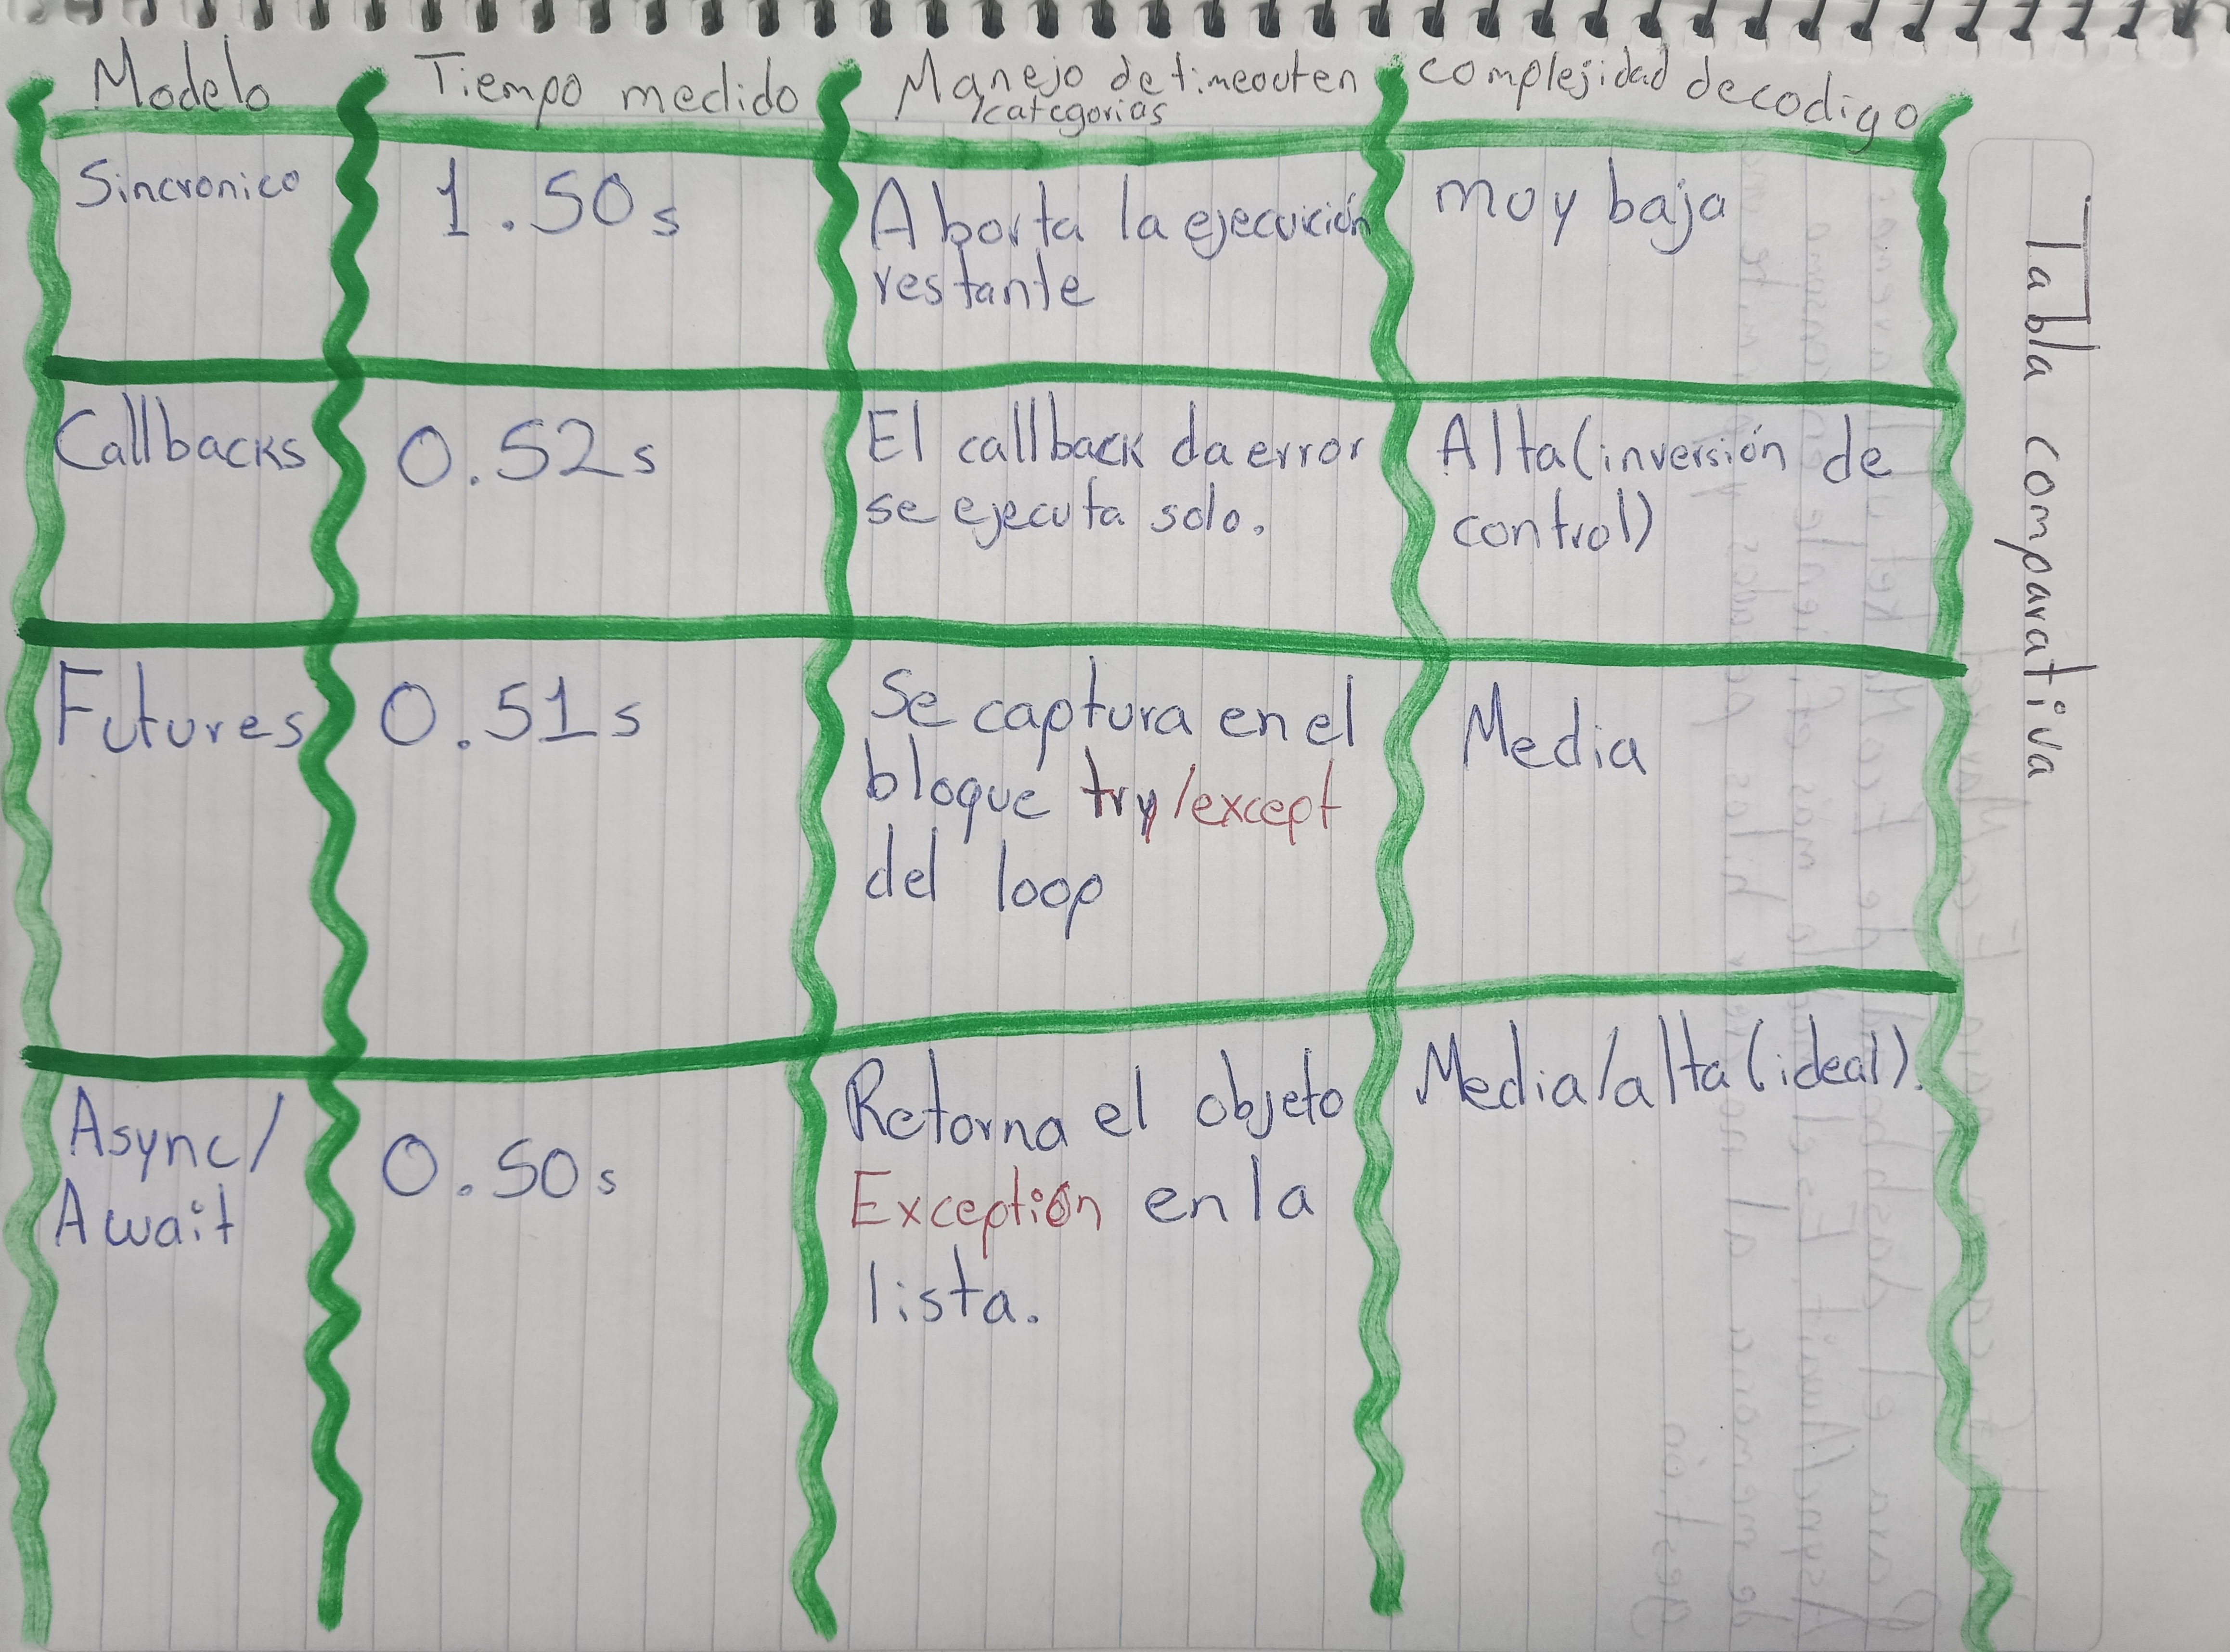 Modelo
Tiempo medido
Manejo de timeout en
/categorias
complejidad de codigo
Sincronico
1.50s
Aborta la ejecución
restante
muy baja
Callbacks
0.52s
El callback da error
se ejecuta solo.
Alta (inversión de
control)
Futures
0.51s
Se captura en el
bloque try/except
del loop
Media
Async/
Await
0.50s
Retorna el objeto
Exceptión en la
lista.
Media/alta (ideal).
Tabla comparativa